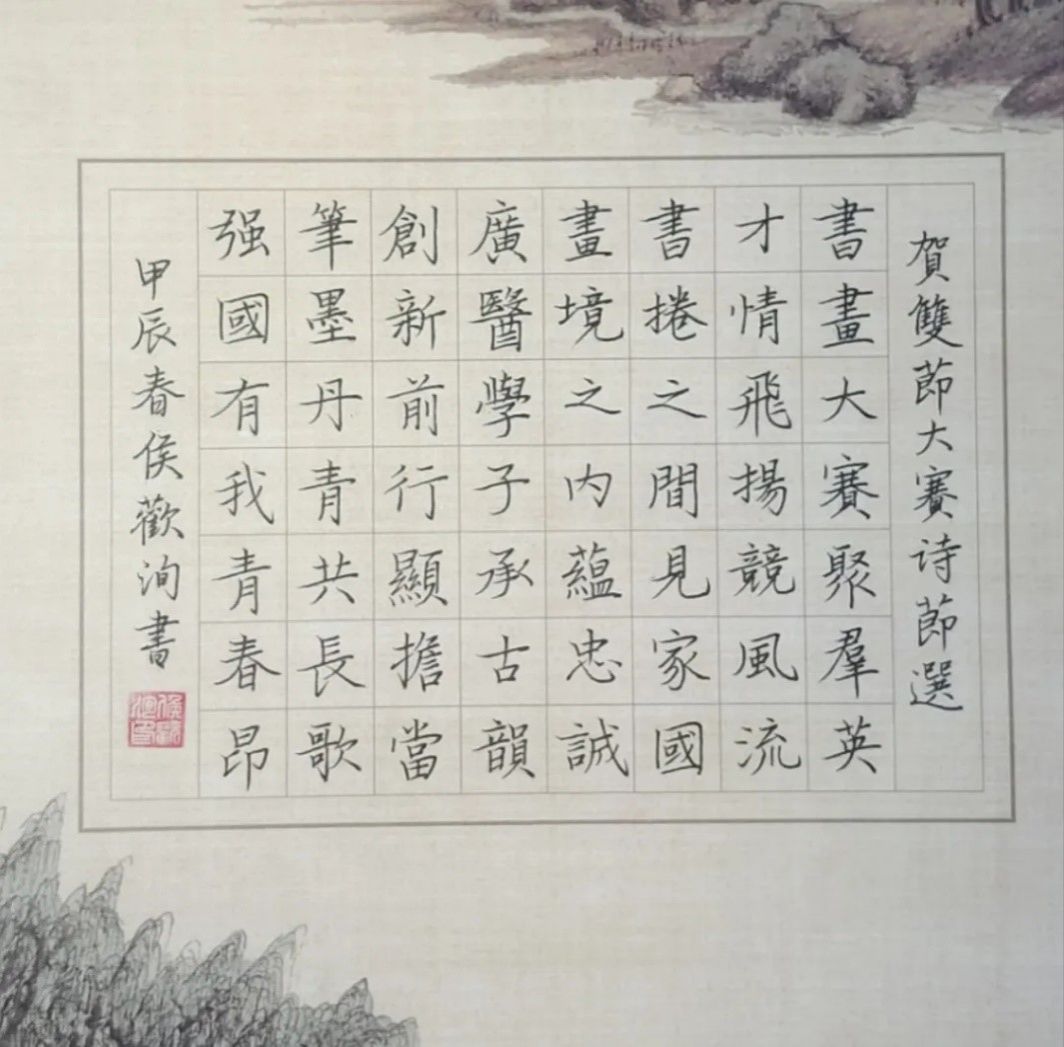 賀雙節大賽诗節選
書畫大賽聚羣英
才情飛揚競風流
書捲之間見家國
畫境之内蘊忠誠
廣醫學子承古韻
創新前行顯擔當
筆墨丹青共長歌
强國有我青春昂
甲辰春侯歡洵書